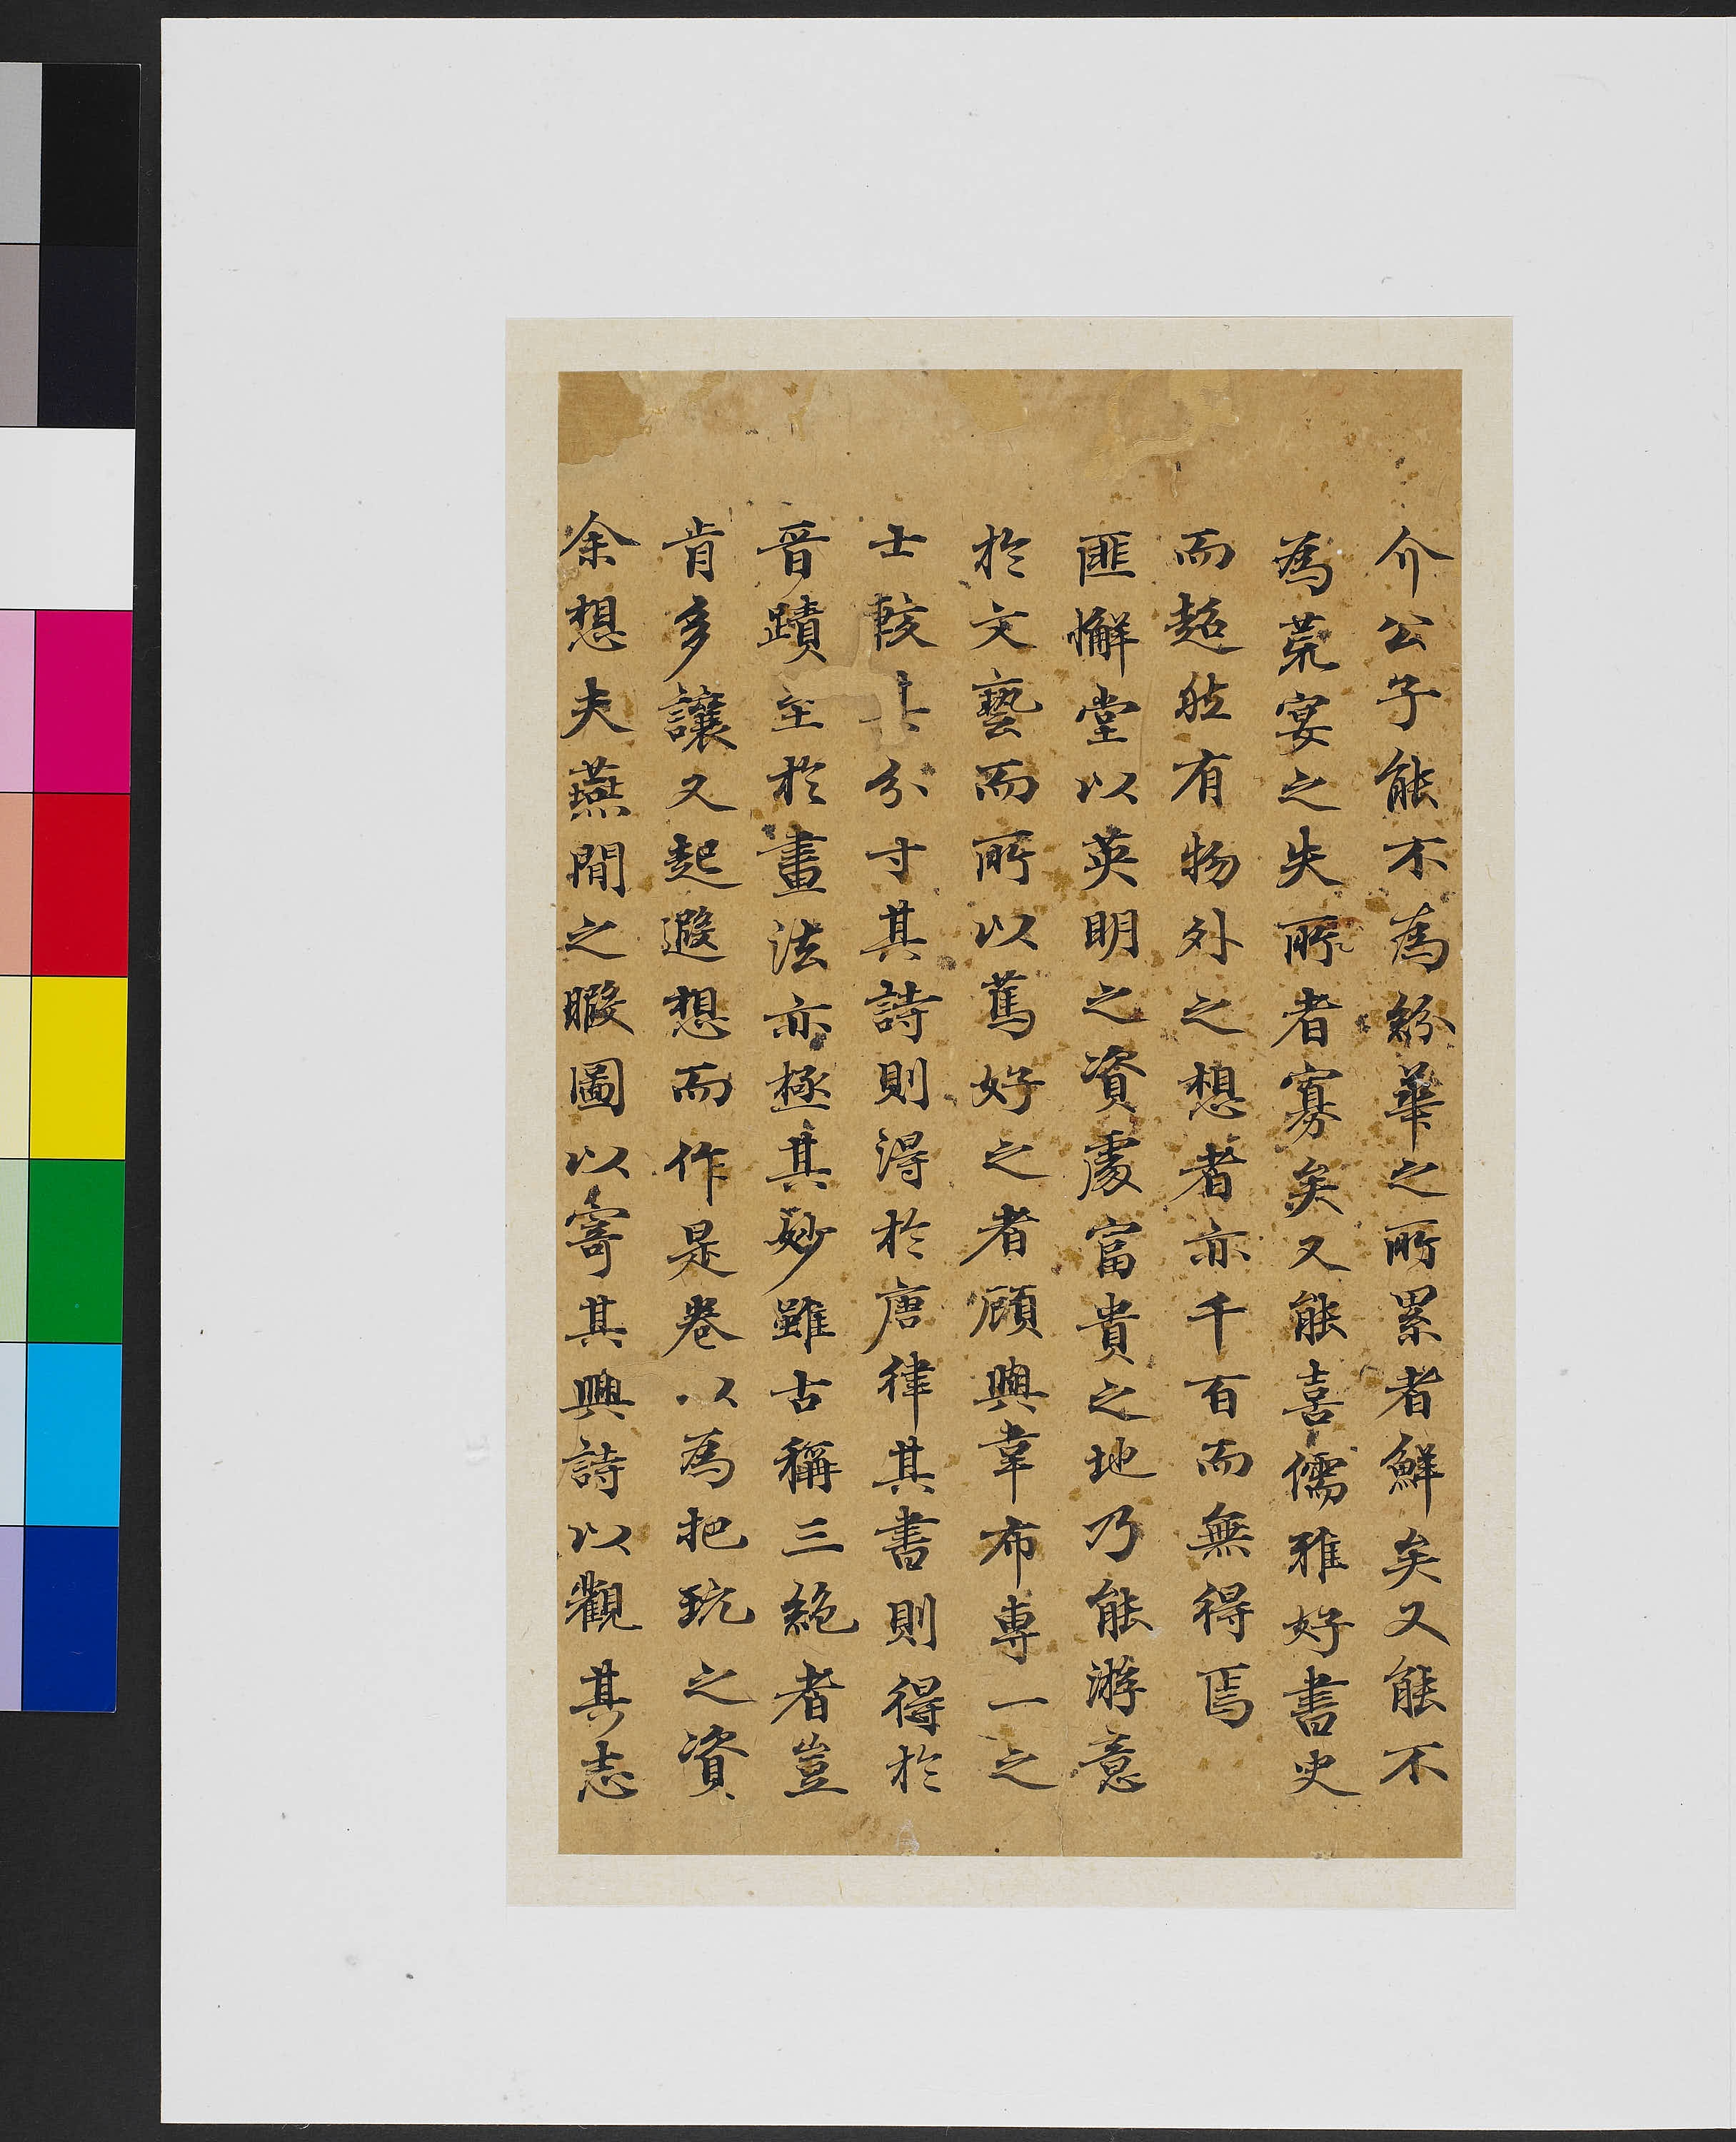 介公子能不為紛華之所累者鮮矣又能不
為荒宴之失所者寡矣又能喜儒雅好書史
而超然有物外之想者亦千百而無得焉
匪懈堂以英明之資處富貴之地乃能游意
於文藝而所以篤好之者顧與韋布專一之
士較其分寸其詩則得於唐律其書則得於
晉蹟至於畫法亦極其妙雖古稱三絶者豈
肯多讓又起遐想而作是卷以為把玩之資
余想夫燕閒之暇圖以寄其興詩以觀其志